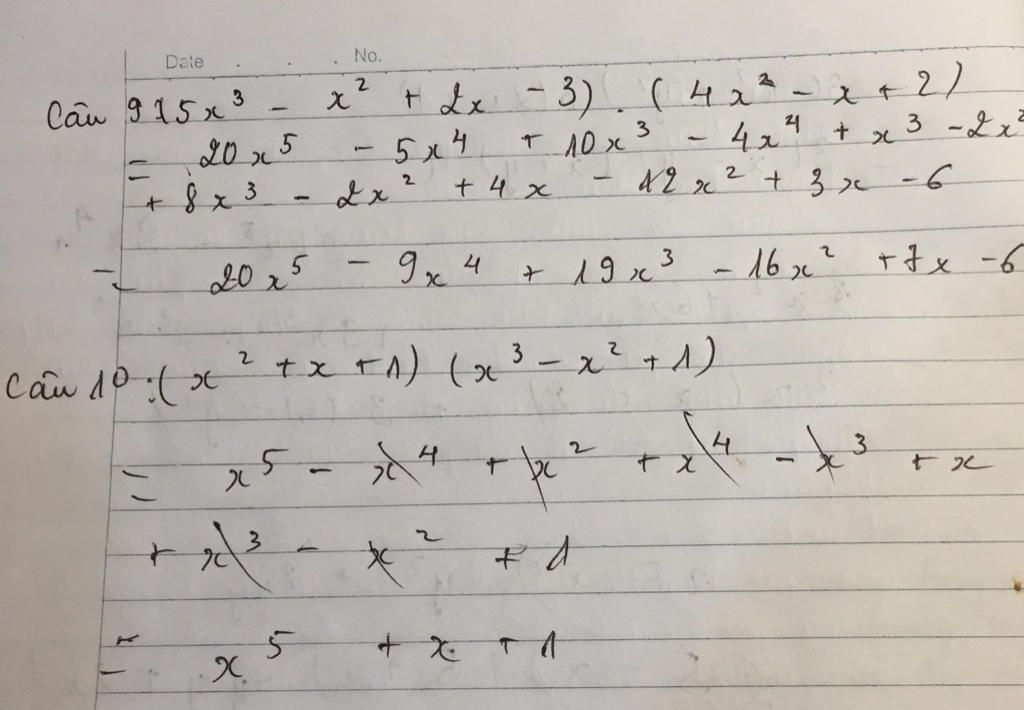 Date . . . No.
Câu 9: (5x³ - x² + 2x - 3) . (4x² - x + 2)
= 20x⁵ - 5x⁴ + 10x³ - 4x⁴ + x³ - 2x²
+ 8x³ - 2x² + 4x - 12x² + 3x - 6
= 20x⁵ - 9x⁴ + 19x³ - 16x² + 7x - 6
Câu 10 : (x² + x + 1) (x³ - x² + 1)
= x⁵ - x⁴ + x² + x⁴ - x³ + x
+ x³ - x² + 1
= x⁵ + x + 1